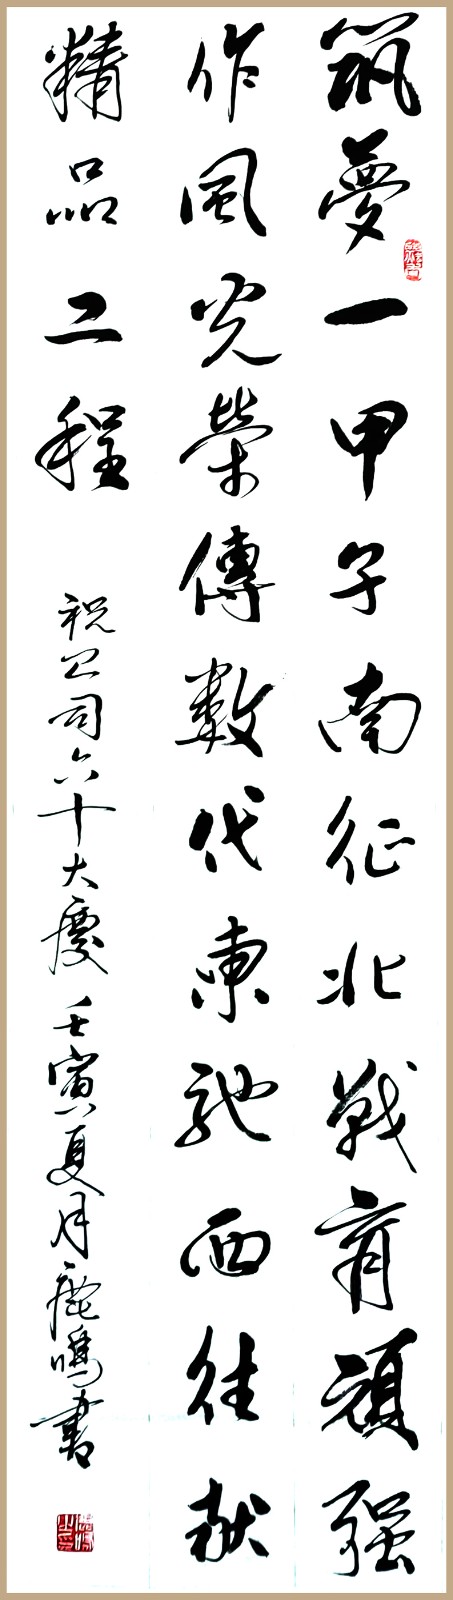 筑夢一甲子南征北戰育頑强
作風光榮傳數代東馳西往献
精品工程
祝公司六十大慶 壬寅夏月鹿鳴書